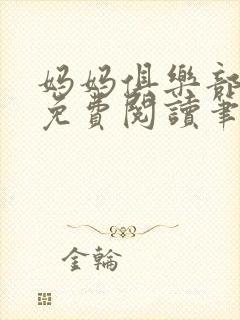 妈妈俱樂部
免費閱讀筆
金輪